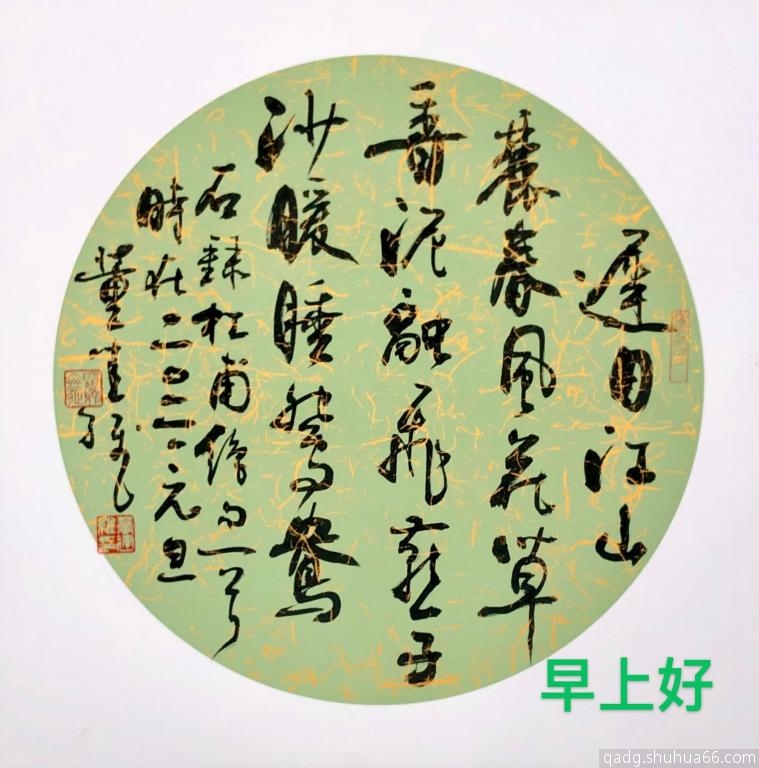 遲日江山
麗春風花草
香泥融飛燕子
沙暖睡鴛鴦
右錄杜甫絕句一首
時在二〇二元旦
董
早上好
qadg.shuhua66.com